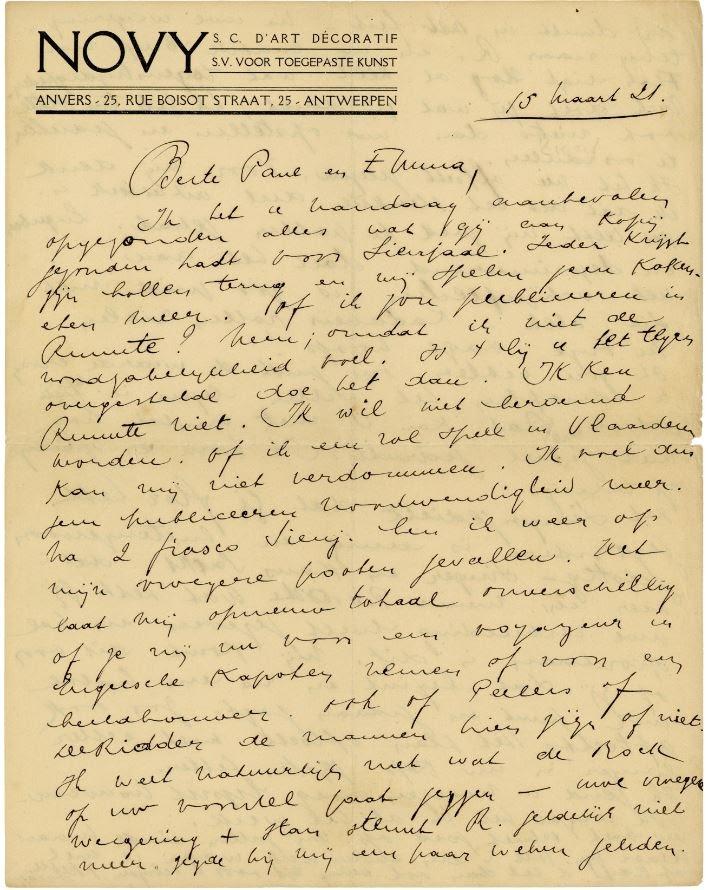 NOVY S. C. D'ART DÉCORATIF
S.V. VOOR TOEGEPASTE KUNST
ANVERS - 25, RUE BOISOT STRAAT, 25 - ANTWERPEN
15 Maart 21.
Beste Paul en Emma,
Ik heb u vandaag aanbevolen
opgezonden alles wat gij aan kopij
gezonden hadt voor Sienjaal. Ieder krijgt
zijn bollen terug en wij spelen geen koken-
eten meer. Of ik zou publiceeren in
Ruimte? Neen, omdat ik niet de
noodzakelijkheid voel. Is + bij u het tegen
overgestelde doe het dan. Ik ken
Ruimte niet. Ik wil niet beroemd
worden. Of ik een rol speel in Vlaanderen
kan mij niet verdommen. Ik voel dus
geen publiceeren noodwendigheid meer.
Na 2 fiasco Sienj. ben ik weer op
mijn vroegere pooten gevallen. Het
laat mij opnieuw totaal onverschillig
of je mij nu voor een voyageur in
Engelsche Kapoten nemen of voor een
beeldhouwer. Ook of Peeters of
De Ridder de mannen hier zijn of niet.
Ik weet natuurlijk niet wat de Bock
op uw voorstel gaat zeggen — uwe vroegere
weigering + Stan steunt R. geldelijk niet
meer. zegde hij mij een paar weken geleden.